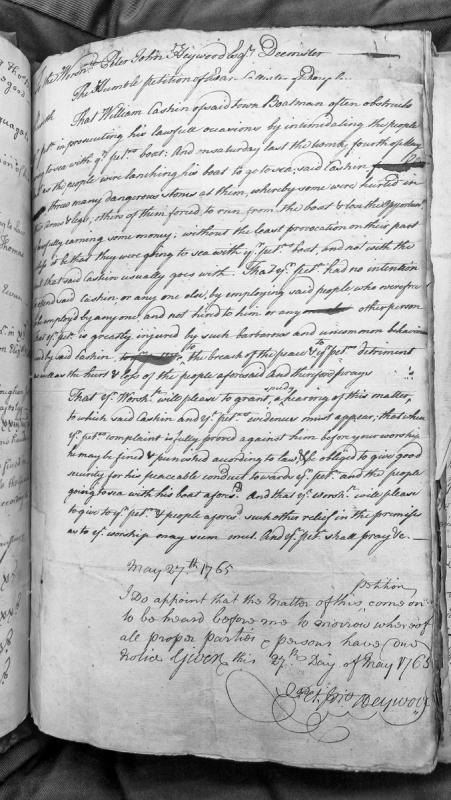 the Worsh.. Peter John Heywood Esq.r Deemster
The Humble petition of
That William Cashin of said town Boatman often obstructs
pet.r in prosecuting his lawfull occasions by intimidating the people
to sea with y.r pet.rs boat; And on saturday last the twenty fourth of May
as the people were lanching his boat to go to sea, said Cashin
threw many dangerous stones at them, whereby some were hurted in
arms & legs, others of them forced to run from the boat & lose the opportunity
lawfully earning some money; without the least provocation on their part
it be that they were going to sea with y.r pet.rs boat, and not with the
that said Cashin usually goes with. That y.r pet.r had no intention
offend said Cashin or any one else, by employing said people who were free
be employd by any one, and not hired to him or any other person
that y.r pet.r is greatly injured by such barbarous and uncommon behavior
used by said Cashin, to the breach of the peace, to y.r pet.rs detriment
as well as the hurt & loss of the people aforesaid and therefore prays
That y.r Worsh.p will please to grant a speedy hearing of this matter,
to which said Cashin and y.r pet.rs evidences must appear; that when
y.r pet.rs complaint is fully proved against him before your worship
he may be fined & punished according to law, & be obliged to give good
security for his peaceable conduct towards y.r pet.r and the people
going to sea with his boat afores.d And that y.r Worsh.p will please
to give to y.r pet.r & people afores.d such other relief in the premises
as to y.r worship may seem meet. And y.r pet.r shall pray &c.
May 27.th 1765
I Do appoint that the Matter of this petition come on
to be heard before me to morrow whereof
all proper parties & persons have due
Notice Given this 27.th Day of May 1765
Pet. Jno Heywood